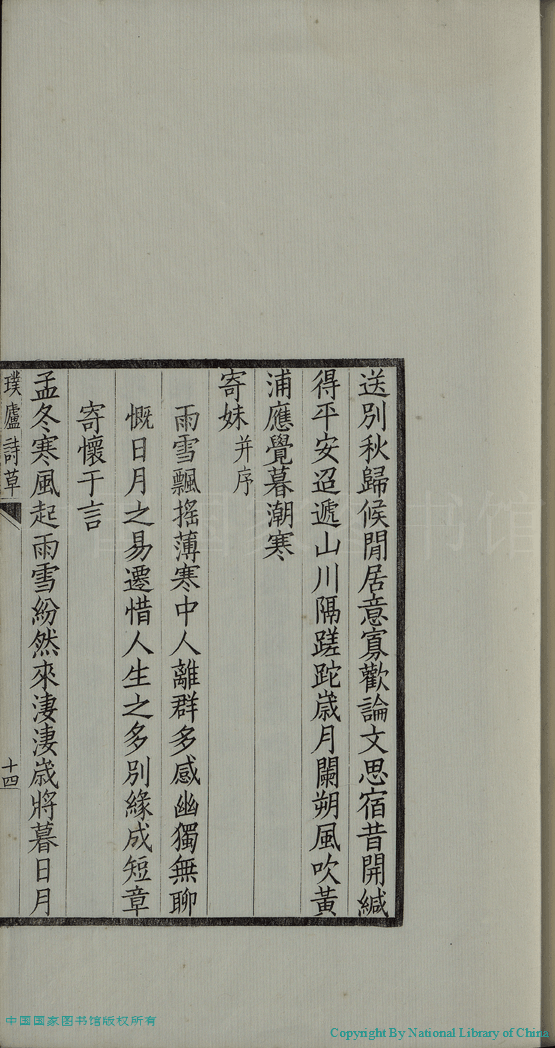 送別秋歸候閒居意寡歡論文思宿昔開緘
得平安迢遞山川隔蹉跎歲月闌朔風吹黃
浦應覺暮潮寒
寄妹 并序
雨雪飄搖薄寒中人離群多感幽獨無聊
慨日月之易遷惜人生之多別緣成短章
寄懷于言
孟冬寒風起雨雪紛然來淒淒歲將暮日月
璞廬詩草
十四
中国国家图书馆版权所有
Copyright By National Library of China